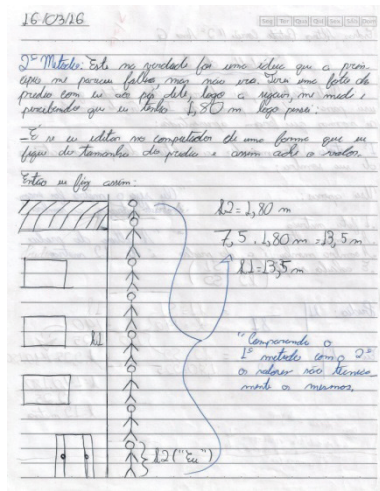 16/03/16
Seg Ter Qua Qui Sex Sáb Dom
2º Método: Este na verdade foi uma ideia que a prin-
cípio me pareceu falha, mas não era. Tirei uma foto do
predio com eu ao pé dele, logo a seguir, me medi e
percebendo que eu tenho 1,80 m logo pensei:
_E se eu editar no computador de uma forma que eu
fique do tamanho do predio e assim ache o valor.
Então eu fiz assim:
h2 = 1,80 m
7,5 . 1,80 m = 13,5 m
h1 = 13,5 m
h1
"Comparando o
1º metodo com o 2º
os valores são tecnica
mente os mesmos,
h2 ("Eu")